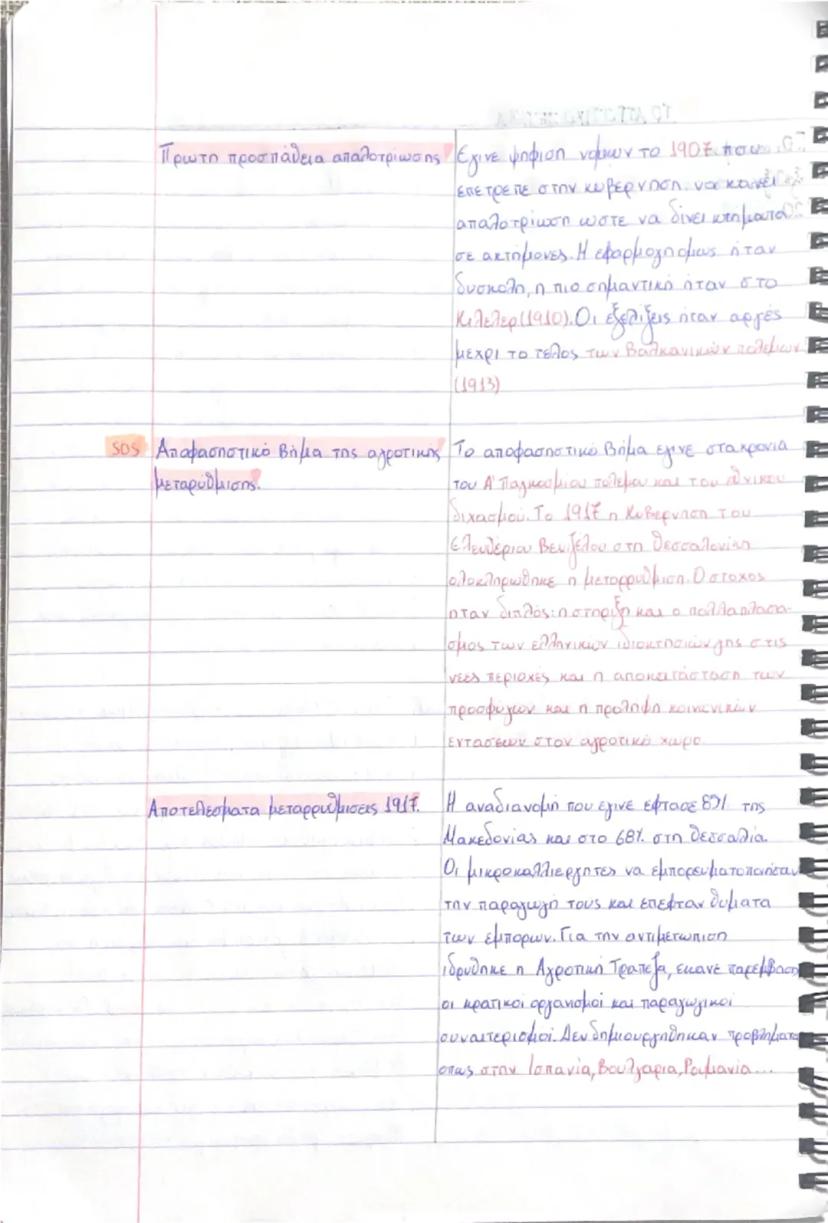 Πρωτη προσπάθεια απαλοτρίωσης
Εγινε ψηφιση νομων το 1907 που
επετρεπε στην κυβερνηση να κανει
απαλοτρίωση ωστε να δίνει κτήματα
σε ακτήμονες. Η εφαρμογη ομως ήταν
δυσκολη, η πιο σημαντικη ήταν στο
Κιλελερ (1910). Οι εξελίξεις ήταν αργές
μεχρι το τελος των Βαλκανικών πολεμων
(1913)
SOS
Αποφασηστικό Βήμα της αγροτικης
μεταρύθμισης.
Το αποφασηστικο Βήμα εγινε στα χρονια
του Α' Παγκοσμιου πολεμου και του εθνικου
διχασμού. Το 1917 η Κυβερνηση του
Ελευθέριου Βενιζελου στη Θεσσαλονίκη
ολοκληρωθηκε η μεταρρυθμιση. Ο στοχος
ηταν διπλός: η στηριξη και ο πολλαπλασα-
σμος των ελληνικων ιδιοκτησιών γης στις
νεες περιοχές και η αποκατάσταση των
προσφυγων και η προληψη κοινωνικών
εντασεων στον αγροτικό χωρο.
Αποτελεσματα μεταρρυθμισεις 1917.
Η αναδιανομή που εγινε εφτασε 85% της
Μακεδονίας και στο 68% στη Θεσσαλία.
Οι μικροκαλλιεργητες να εμπορευματοποιησαν
την παραγωγή τους και επεφταν θυματα
των εμπορων. Για την αντιμετωπιση
ιδρυθηκε η Αγροτική Τραπεζα, εκανε παρέμβαση
οι κρατικοί οργανισμοί και παραγωγικοί
συναιτερισμοί. Δεν δημιουργήθηκαν προβληματα
οπως στην Ισπανία, Βουλγαρια, Ρουμανια...